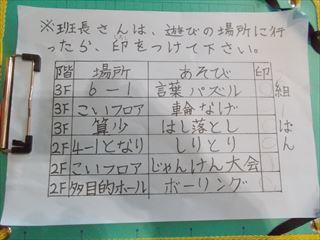 ※班長さんは、遊びの場所に行
ったら、印をつけて下さい。
階 場所 あそび 印
3F 6-1 言葉パズル
3F こいフロア 輪なげ
3F 算少 はし落とし
2F 4-1となり しりとり
2F こいフロア じゃんけん大会
2F 多目的ホール ボーリング
組 はん